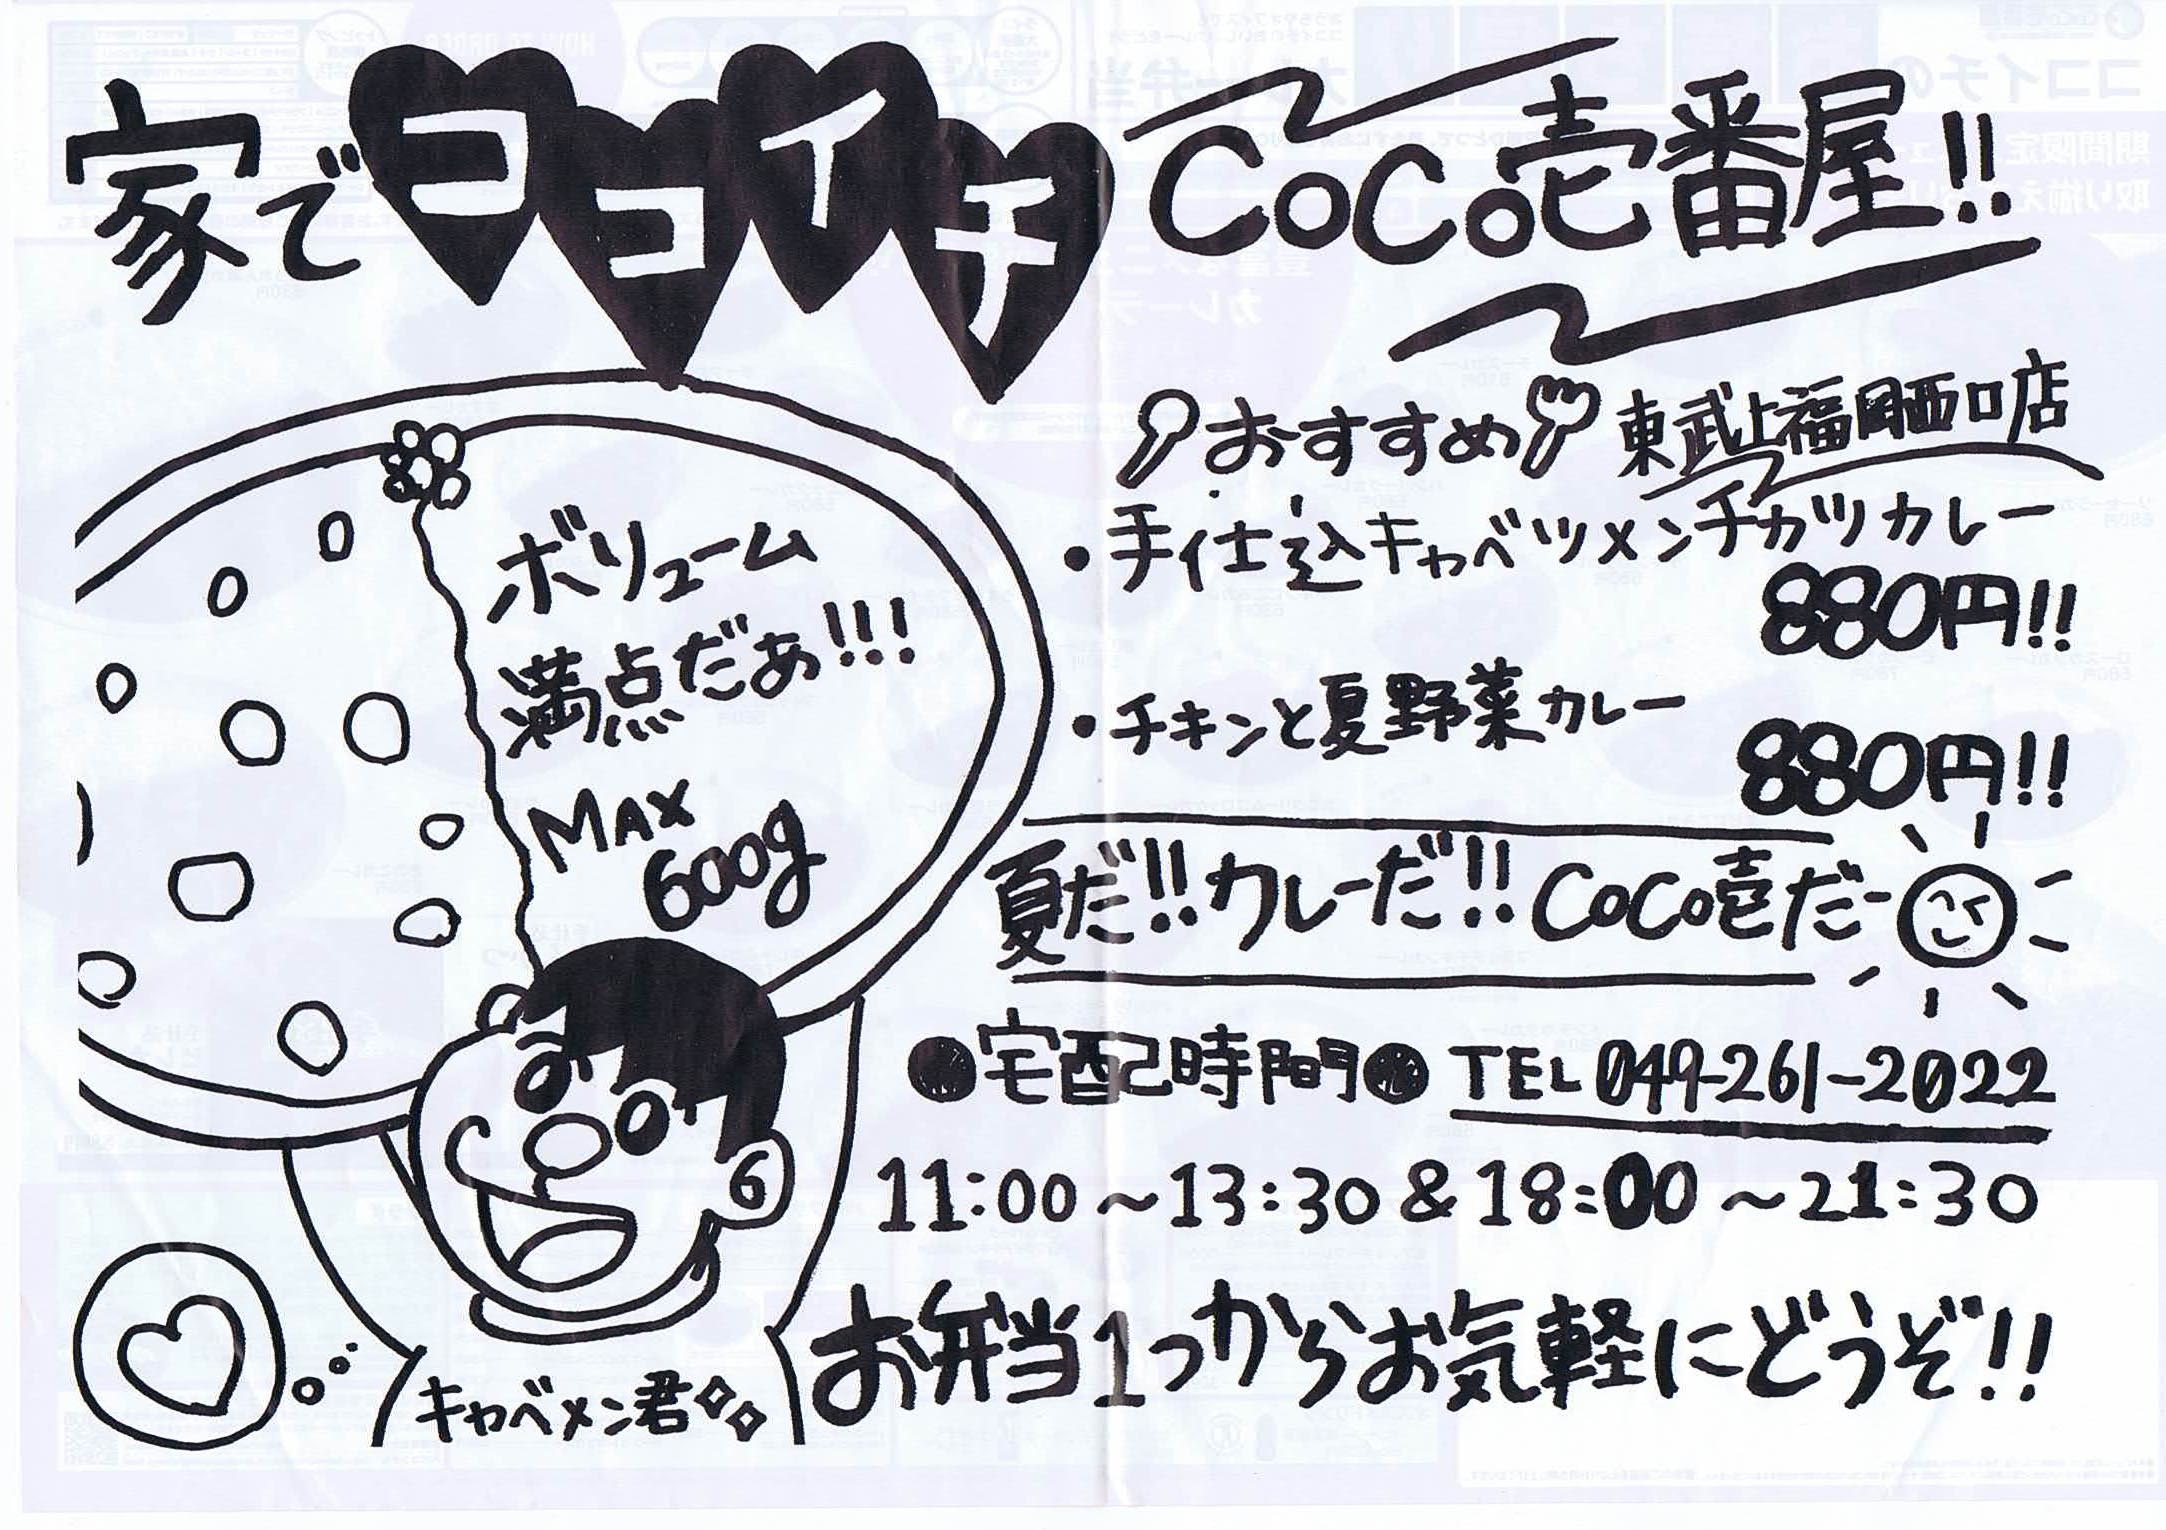 家でココイチ CoCo壱番屋!!
おすすめ 東武上福岡西口店
・手仕込キャベツメンチカツカレー
880円!!
・チキンと夏野菜カレー
880円!!
ボリューム
満点だぁ!!!
MAX
600g
夏だ!!カレーだ!!CoCo壱だー
●宅配時間● TEL 049-261-2022
11:00～13:30&18:00～21:30
お弁当1つからお気軽にどうぞ!!
キャベメン君